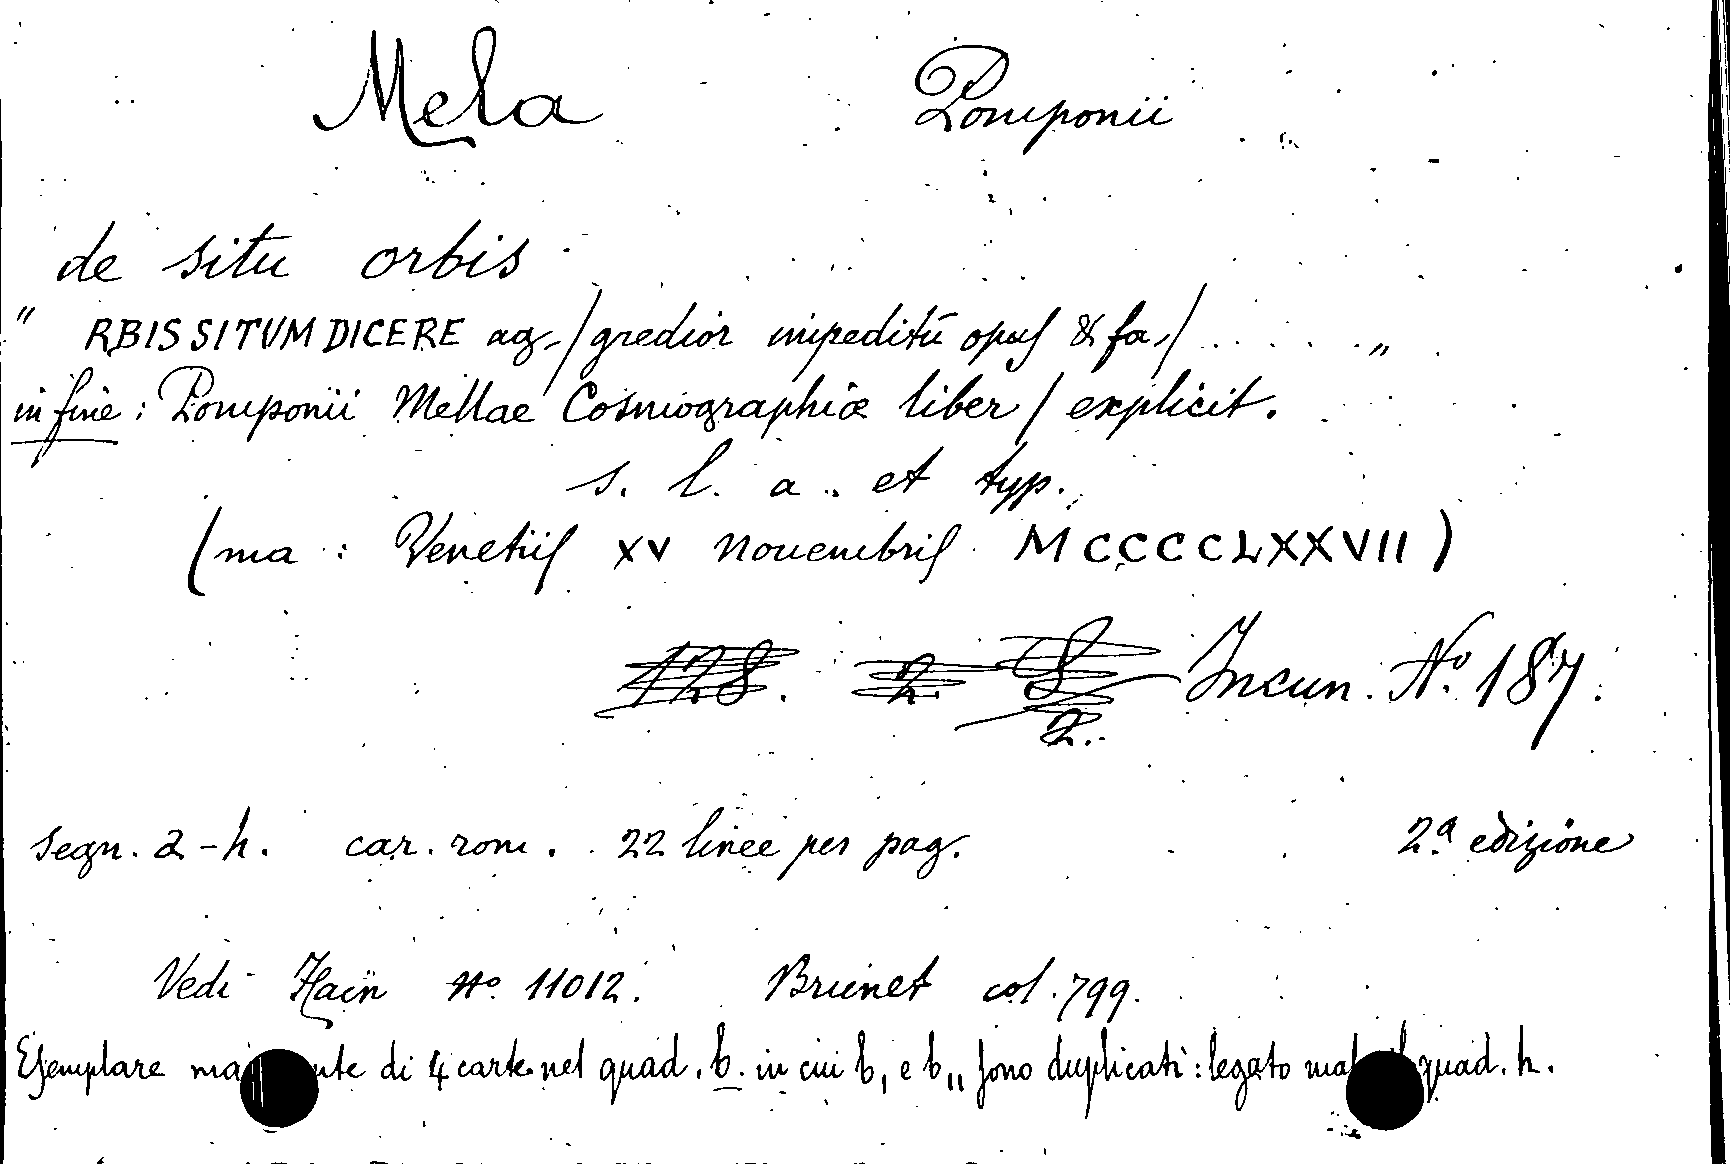 Mela Pomponii
de situ orbis
" RBIS SITVM DICERE ag-/gredior impeditū opus & fa-/ . . . . . "
in fine : Pomponii Mellae Cosmographiæ liber / explicit.
s. l. a. et typ.
(ma : Venetiis XV nouembris MCCCCLXXVII)
128. 2 8 Incun. Nº 187.
2.
segn. a-h. car. rom. 22 linee per pag. 2ª edizione
Vedi Hain Nº 11012. Brunet col. 799.
Esemplare di 4 carte nel quad. b. in cui b, e b,, sono duplicati : legato quad. h.